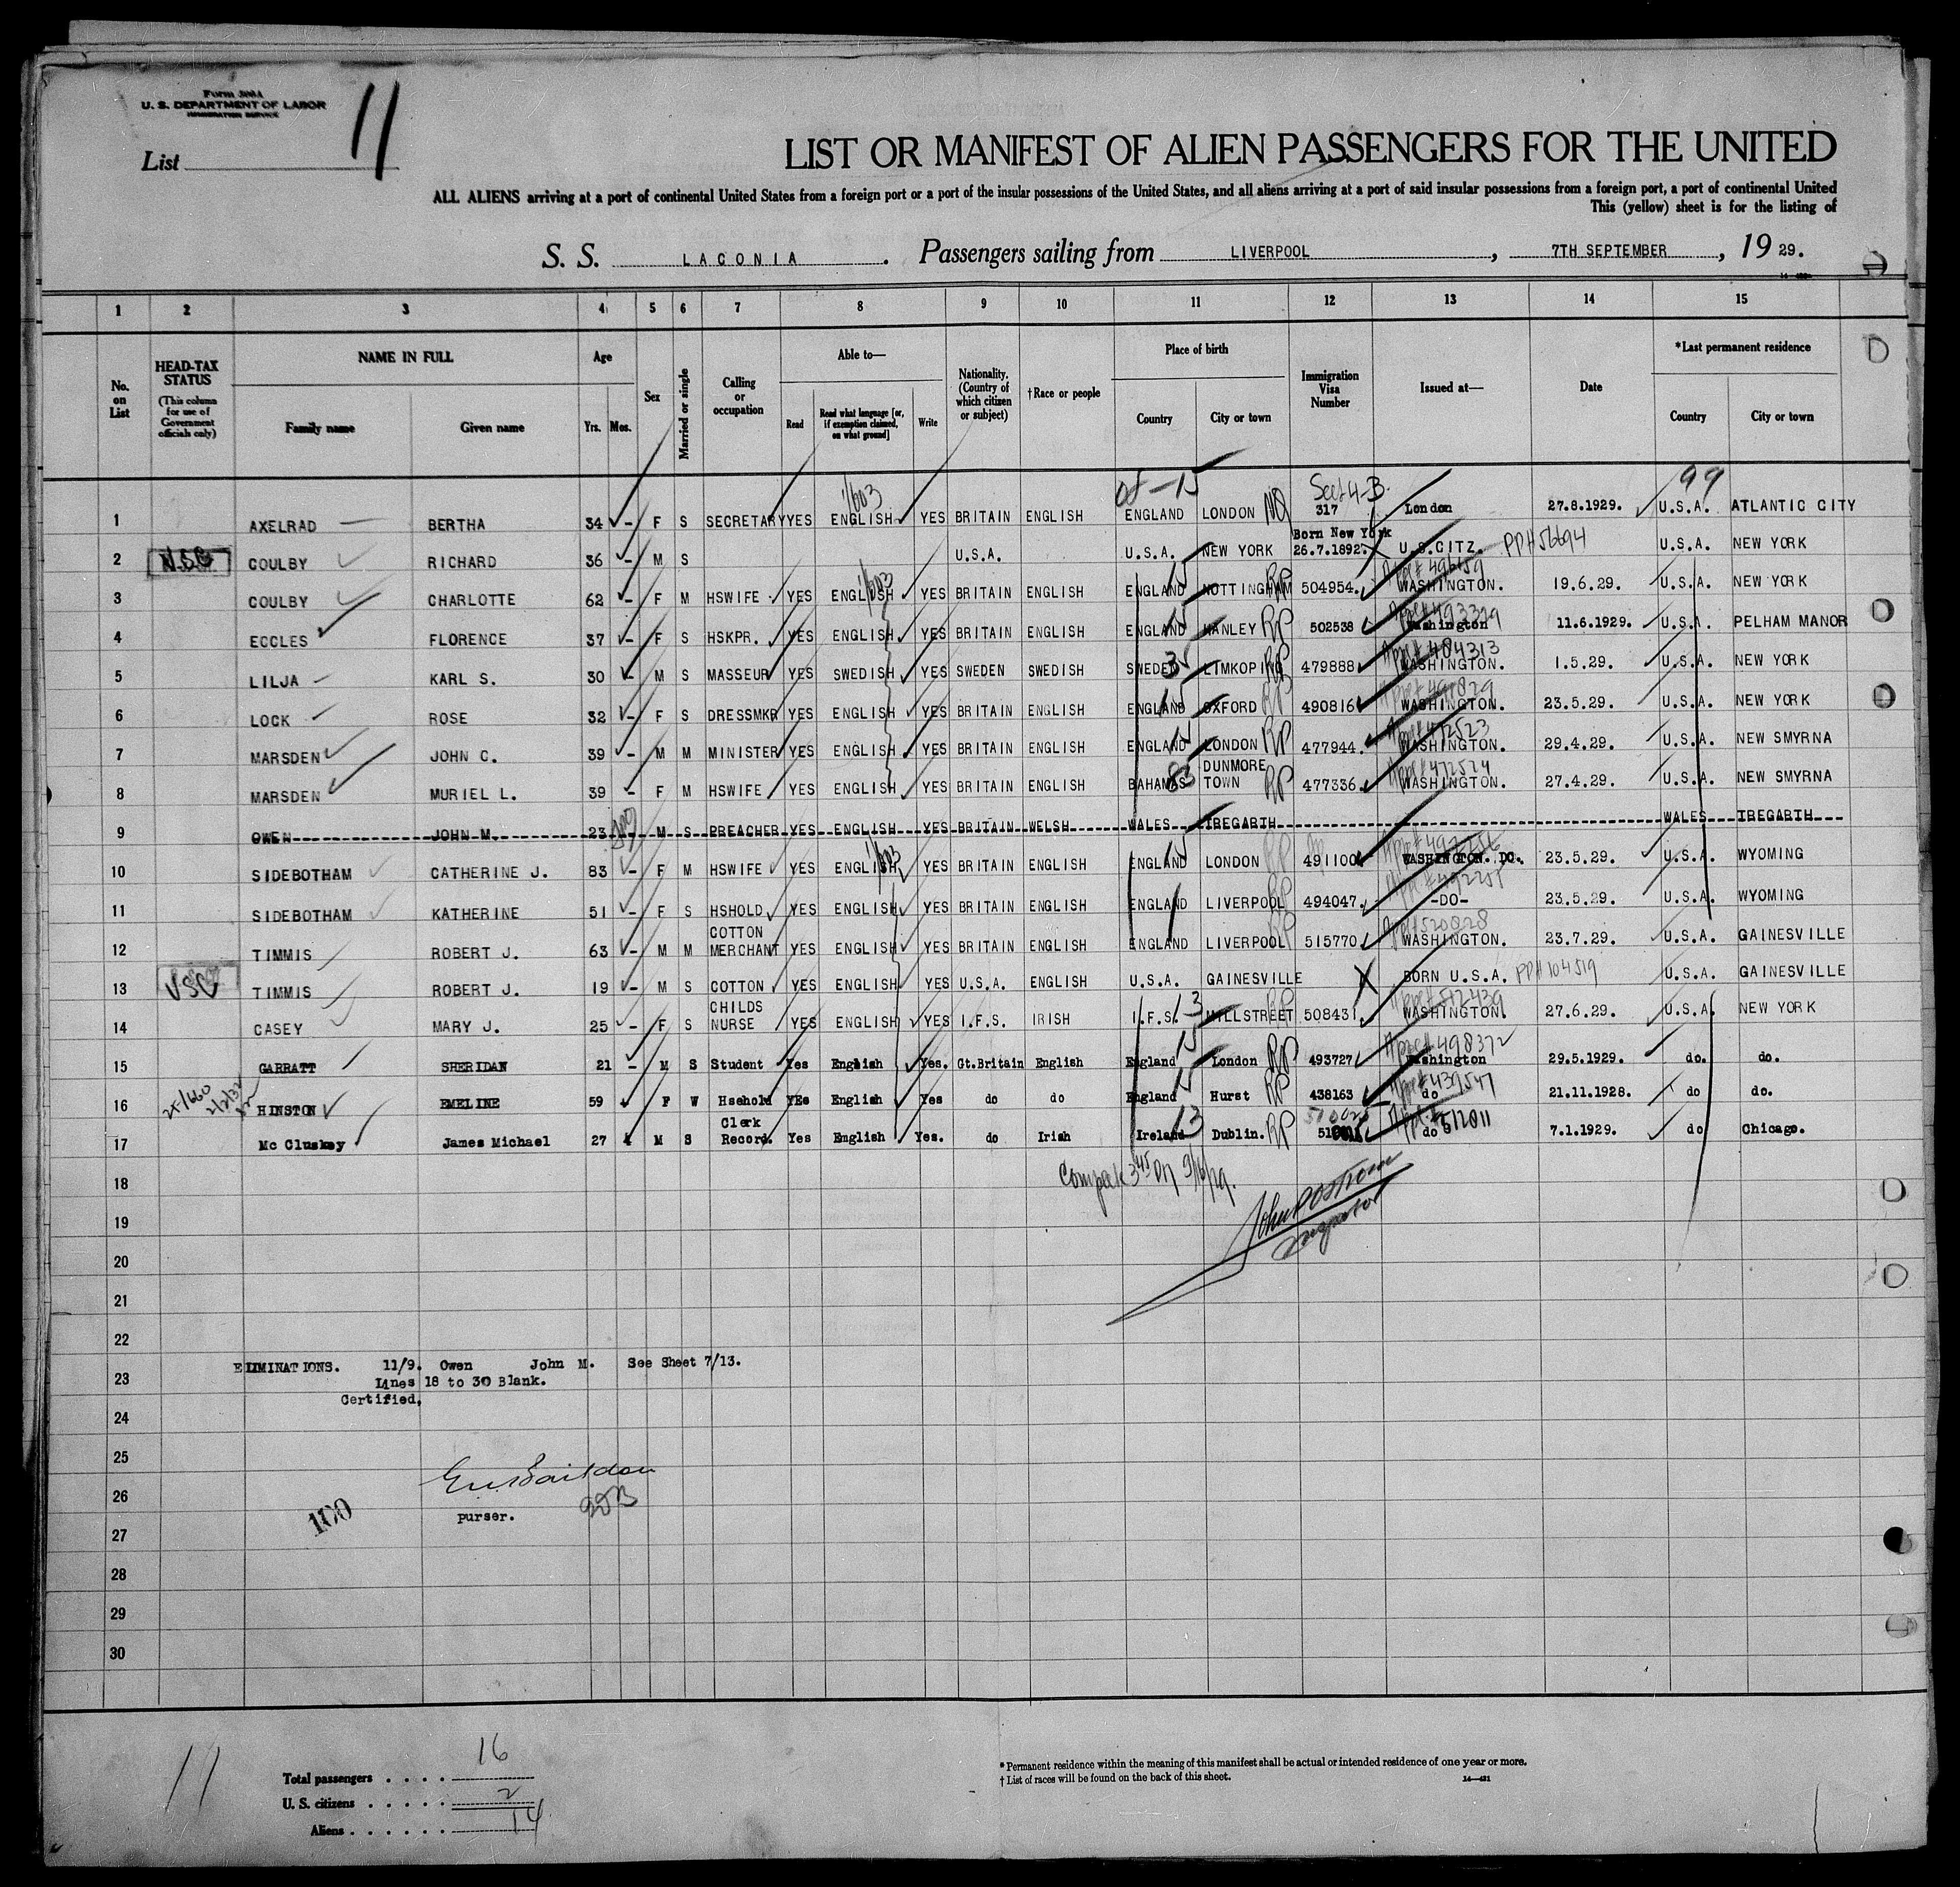 Form 500A
U. S. DEPARTMENT OF LABOR
IMMIGRATION SERVICE
List 11
LIST OR MANIFEST OF ALIEN PASSENGERS FOR THE UNITED
ALL ALIENS arriving at a port of continental United States from a foreign port or a port of the insular possessions of the United States, and all aliens arriving at a port of said insular possessions from a foreign port, a port of continental United
This (yellow) sheet is for the listing of
S. S. LACONIA. Passengers sailing from LIVERPOOL, 7TH SEPTEMBER, 19 29.
1 2 3 4 5 6 7 8 9 10 11 12 13 14 15
No. on List
HEAD-TAX STATUS
(This column for use of Government officials only)
NAME IN FULL
Family name Given name
Age
Yrs. Mos.
Sex
Married or single
Calling or occupation
Able to—
Read
Read what language [or, if exemption claimed, on what ground]
Write
Nationality. (Country of which citizen or subject)
†Race or people
Place of birth
Country City or town
Immigration Visa Number
Issued at—
Date
*Last permanent residence
Country City or town
1/603 Sect 4-B. 99
1 AXELRAD BERTHA 34 - F S SECRETARY YES ENGLISH YES BRITAIN ENGLISH ENGLAND LONDON NQ 317 London 27.8.1929. U.S.A. ATLANTIC CITY
Born New York
2 COULBY RICHARD 36 - M S U.S.A. U.S.A. NEW YORK 26.7.1892. U.S.CITZ. PPH56694 U.S.A. NEW YORK
3 COULBY CHARLOTTE 62 - F M HSWIFE YES ENGLISH YES BRITAIN ENGLISH ENGLAND NOTTINGHAM RP 504954. WASHINGTON. 19.6.29. U.S.A. NEW YORK
4 ECCLES FLORENCE 37 - F S HSKPR. YES ENGLISH. YES BRITAIN ENGLISH ENGLAND HANLEY RP 502538 Washington 11.6.1929. U.S.A. PELHAM MANOR
5 LILJA KARL S. 30 - M S MASSEUR YES SWEDISH YES SWEDEN SWEDISH SWEDEN LIMKOPING RP 479888 WASHINGTON. 1.5.29. U.S.A. NEW YORK
6 LOCK ROSE 32 - F S DRESSMKR YES ENGLISH YES BRITAIN ENGLISH ENGLAND OXFORD RP 490816 WASHINGTON. 23.5.29. U.S.A. NEW YORK
7 MARSDEN JOHN C. 39 - M M MINISTER YES ENGLISH YES BRITAIN ENGLISH ENGLAND LONDON RP 477944. WASHINGTON. 29.4.29. U.S.A. NEW SMYRNA
DUNMORE
8 MARSDEN MURIEL L. 39 - F M HSWIFE YES ENGLISH YES BRITAIN ENGLISH BAHAMAS TOWN RP 477336. WASHINGTON. 27.4.29. U.S.A. NEW SMYRNA
9 OWEN JOHN M. 23 M S PREACHER YES ENGLISH YES BRITAIN WELSH WALES TREGARTH WALES TREGARTH
10 SIDEBOTHAM CATHERINE J. 83 - F M HSWIFE YES ENGLISH YES BRITAIN ENGLISH ENGLAND LONDON RP 491100 WASHINGTON. DC. 23.5.29. U.S.A. WYOMING
11 SIDEBOTHAM KATHERINE 51 - F S HSHOLD YES ENGLISH YES BRITAIN ENGLISH ENGLAND LIVERPOOL RP 494047. -DO- 23.5.29. U.S.A. WYOMING
COTTON
12 TIMMIS ROBERT J. 63 - M M MERCHANT YES ENGLISH YES BRITAIN ENGLISH ENGLAND LIVERPOOL RP 515770 WASHINGTON. 23.7.29. U.S.A. GAINESVILLE
13 TIMMIS ROBERT J. 19 - M S COTTON YES ENGLISH YES U.S.A. ENGLISH U.S.A. GAINESVILLE X BORN U.S.A. PPH104519 U.S.A. GAINESVILLE
CHILDS
14 CASEY MARY J. 25 - F S NURSE YES ENGLISH YES I.F.S. IRISH I.F.S. MILLSTREET RP 508431. WASHINGTON. 27.6.29. U.S.A. NEW YORK
15 GARRATT SHERIDAN 21 - M S Student Yes English Yes. Gt.Britain English England London RP 493727 Washington 29.5.1929. do. do.
16 HINSTON EMELINE 59 F W Hsehold YEs English Yes do do England Hurst RP 438163 do 21.11.1928. do do.
Clerk
17 Mc Cluskey James Michael 27 M S Record. Yes English Yes. do Irish Ireland Dublin. RP do 7.1.1929. do Chicago.
18
19
20
21
22
ELIMINATIONS. 11/9. Owen John M. See Sheet 7/13.
23 Lines 18 to 30 Blank.
Certified,
24
25
26
purser.
100
27
28
29
30
11
Total passengers 16
U. S. citizens 2
Aliens 14
* Permanent residence within the meaning of this manifest shall be actual or intended residence of one year or more.
† List of races will be found on the back of this sheet.